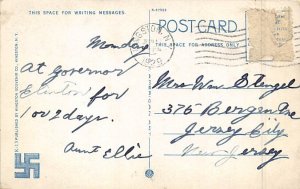 THIS SPACE FOR WRITING MESSAGES.
POSTCARD
THIS SPACE FOR ADDRESS ONLY.
Monday
At Governor
Clinton for
1 or 2 days.
Aunt Ellie
Mrs Wm Stengel
375 Bergen Ave
Jersey City
New Jersey